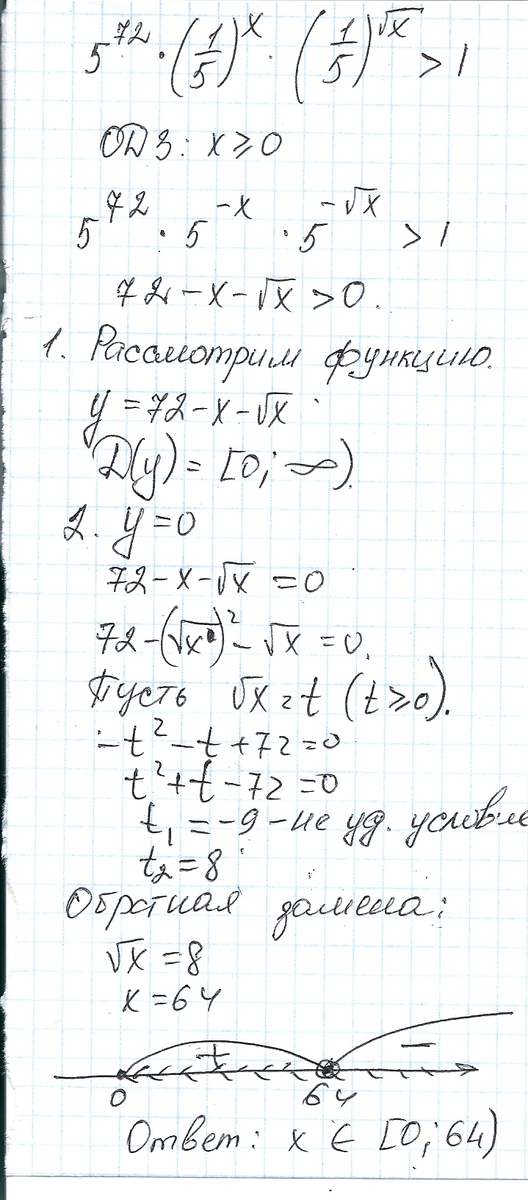 5^72 · (1/5)^x · (1/5)^√x > 1
ОДЗ: x ⩾ 0
5^72 · 5^-x · 5^-√x > 1
72 - x - √x > 0.
1. Рассмотрим функцию.
y = 72 - x - √x
D(y) = [0; ∞).
2. y = 0
72 - x - √x = 0
72 - (√x)^2 - √x = 0.
Пусть √x = t (t ⩾ 0).
-t^2 - t + 72 = 0
t^2 + t - 72 = 0
t₁ = -9 - не уд.
t₂ = 8
Обратная замена:
√x = 8
x = 64
+ -
0 64
Ответ: x ∈ [0; 64)